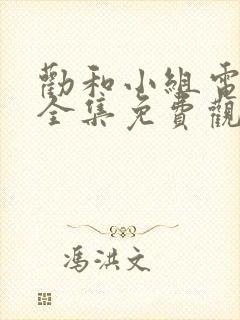 勸和小組電
全集免費觀
馮洪文